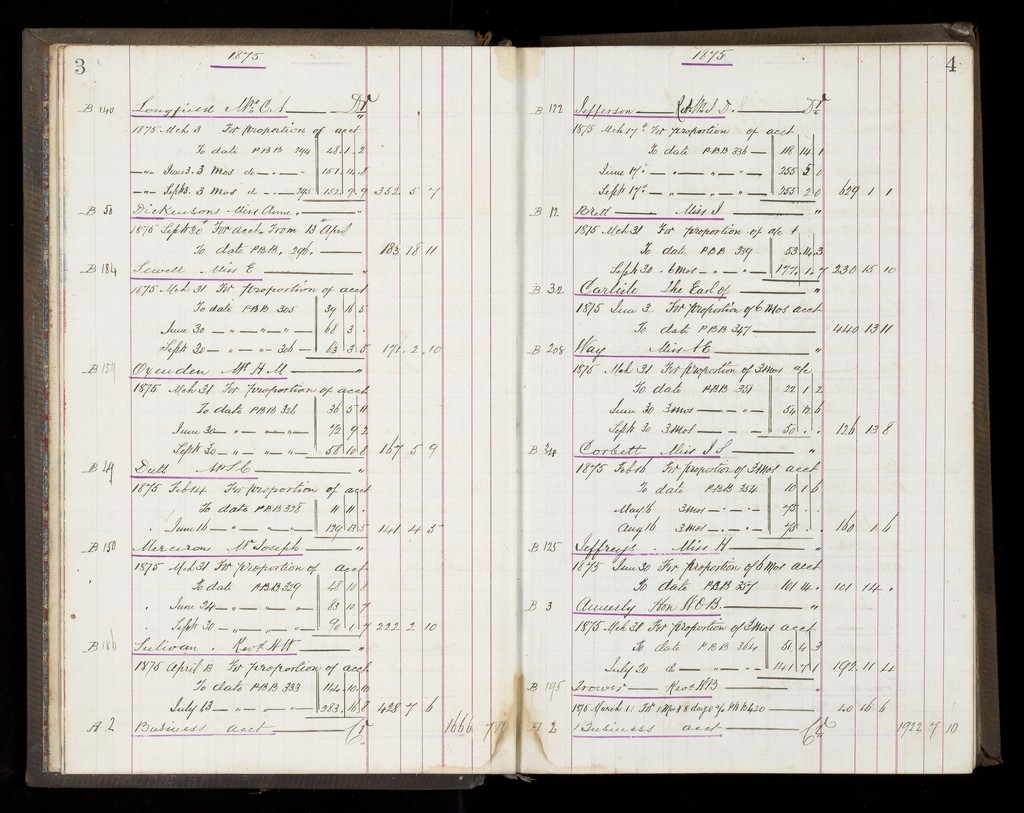 3
1875
B 140 Longfield Mrs C. A — Dr
1875 Mch 3 For proportion of acct
To date P B B 294 48 . 1 . 2
—"— June 3. 3 Mos do — . — 151 . 14 . 8
—"— Sept 3. 3 Mos do — 295 152 . 9 . 9 352 . 5 . 7
B 50 Dickensons Miss Anne. — "
1875 Sept 30th For acct. From 13th April
To date P B B. 296. — 183 18 11
B 184 Sewell Miss E — "
1875 Mch 31 For proportion of acct
To date P B B 305 39 16 5
June 30 — " — " — " — 68 3 .
Sept 30 — " — " — 306 — 63 3 5 171 . 2 . 10
B 159 Oxenden Mr H. M — "
1875 Mch 31 For proportion of acct
To date P B B 326 36 5 11
June 30 — " — " — " — 72 9 2
Sept 30 — " — " — " — 58 10 8 167 5 9
B 49 Dutt — "
1875 Feb 14 For proportion of acct
To date P B B 328 11 11 .
. June 16 — " — " — " — 129 13 5 141 4 5
B 150 Merceron Mr Joseph — "
1875 Mch 31 For proportion of acct
To date P B B 329 48 10 8
. June 24 — " — " — 83 10 7
. Sept 30 — " — " — 90 1 7 222 2 10
B 186 Sulivan . Revd H. W — "
1875 April 13 For proportion of acct
To date P B B 333 144 . 10 . 10
July 13 — " — " — " — 283 . 16 8 428 7 6
A 2 Business acct . — Cr 1666 7
4
1875
B 122 Jefferson — Revd J. D. — Dr
1875 Mch 17th For proportion of acct
To date P B B 336 — 118 14 1
June 17th — " — " — " — 255 5 0
Sept 17th — " — " — " — 255 2 0 629 1 1
B 12 Brett — Miss J — "
1875 Mch 31 For proportion of a/c t
To date P B B 339 53 . 14 . 3
Sept 30 . 6 mos — " — " — 177 . 1 . 7 230 15 10
B 32 Carlisle The Earl of — "
1875 June 3 For proportion of 6 Mos acct
To date P B B 347 — 440 13 11
B 208 Way Miss A E — "
1875 Mch 31 For proportion of 3 mos a/c
To date P B B 351 22 1 2
June 30 3 mos — " — " 54 12 6
Sept 30 3 mos — " — " 50 . . 126 13 8
B 34 Corbett Miss J. S — "
1875 Feb 16 For proportion of 3 mos acct
To date P B B 354 10 1 6
May 16 3 mos — . — . — 75 . .
Aug 16 3 mos — . — . — 75 . . 160 1 6
B 125 Jeffreys . Miss H — "
1875 June 30 For proportion of 6 Mos acct
To date P B B 357 101 14 . 101 14 .
B 3 Annesly Hon W O B. — "
1875 Mch 31 For proportion of 3 mos acct
To date P B B 364 51 4 3
July 20 do — " — " — 141 7 1 192 . 11 4
B 195 Trower — Revd W B — "
1875 March 11 For 1 Mo 88 days a/c P B B 420 — 40 16 6
A 2 Business acct — Cr 1922 7 10